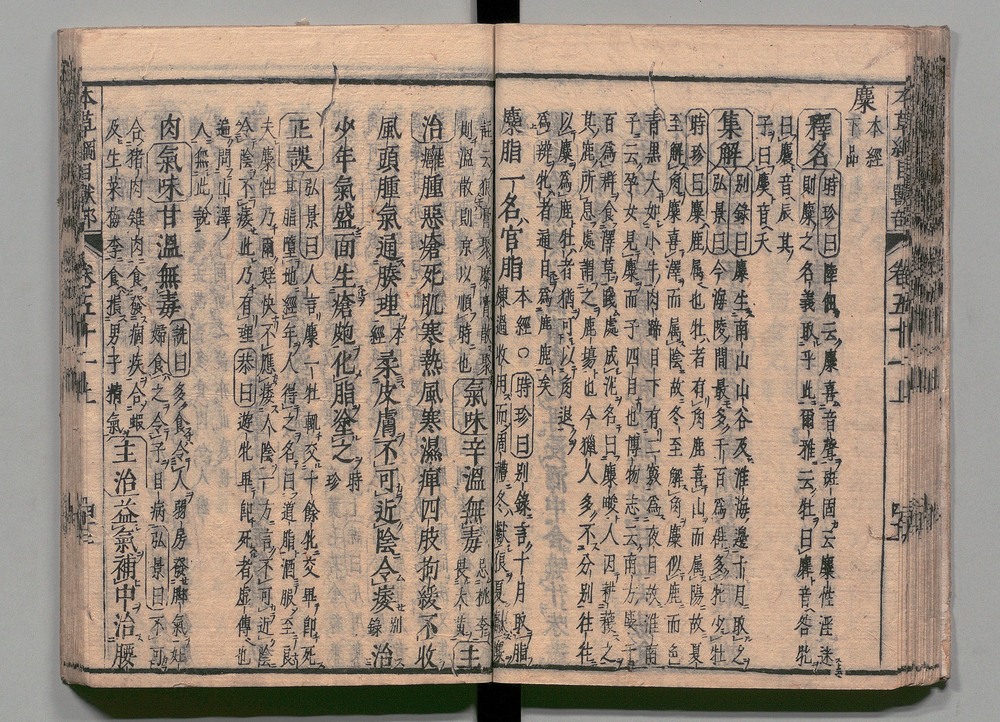 麋 本經下品
釋名 時珍曰陸佃云麋喜音聲班固云麋性淫迷
則麋之名義取乎此爾雅云牡曰麔音咎牝
曰麎音辰其
子曰䴠音夭
集解 別錄曰麋生南山山谷及淮海邊十月取之
弘景曰今海陵間最多千百爲群多牝少牡
時珍曰麋鹿屬也牡者有角鹿喜山而屬陽故夏
至解角麋喜澤而屬陰故冬至解角麋似鹿而色
青黑大如小牛肉蹄目下有二竅爲夜目故淮南
子云孕女見麋而子四目也博物志云南方麋千
百爲群食澤草踐處成泥名曰麋畯人因耕穫之
其鹿所息處謂之鹿場也今獵人多不分別往往
以麋爲鹿牡者猶可以角退
爲辨牝者通目爲鹿矣
麋脂一名官脂 本經○時珍曰別錄言十月取脂
煉過收用而周禮冬獻狼夏獻麋
註云狼膏聚麋膏散聚
則溫散則涼以順時也 氣味辛溫無毒 忌桃李畏大黃 主
治癰腫惡瘡死肌寒熱風寒濕痺四肢拘緩不收
風頭腫氣通腠理 本經 柔皮膚不可近陰令痿 別錄 治
少年氣盛面生瘡皰化脂塗之 時珍
正誤 弘景曰人言麋一牡輒交十餘牝交畢即死
其脂墮地經年人得之名曰遁脂酒服至良
夫麋性乃爾婬快不應痿人陰一方言不可近陰
令陰不痿此乃有理恭曰遊牝畢即死者虛傳也
遍問山澤
人無此說
肉氣味甘溫無毒 詵曰多食令人弱房發脚氣妊
婦食之令子目病弘景曰不可
合猪肉雉肉食發痼疾合蝦
及生菜梅李食損男子精氣 主治益氣補中治腰
本草綱目獸部 卷五十一上